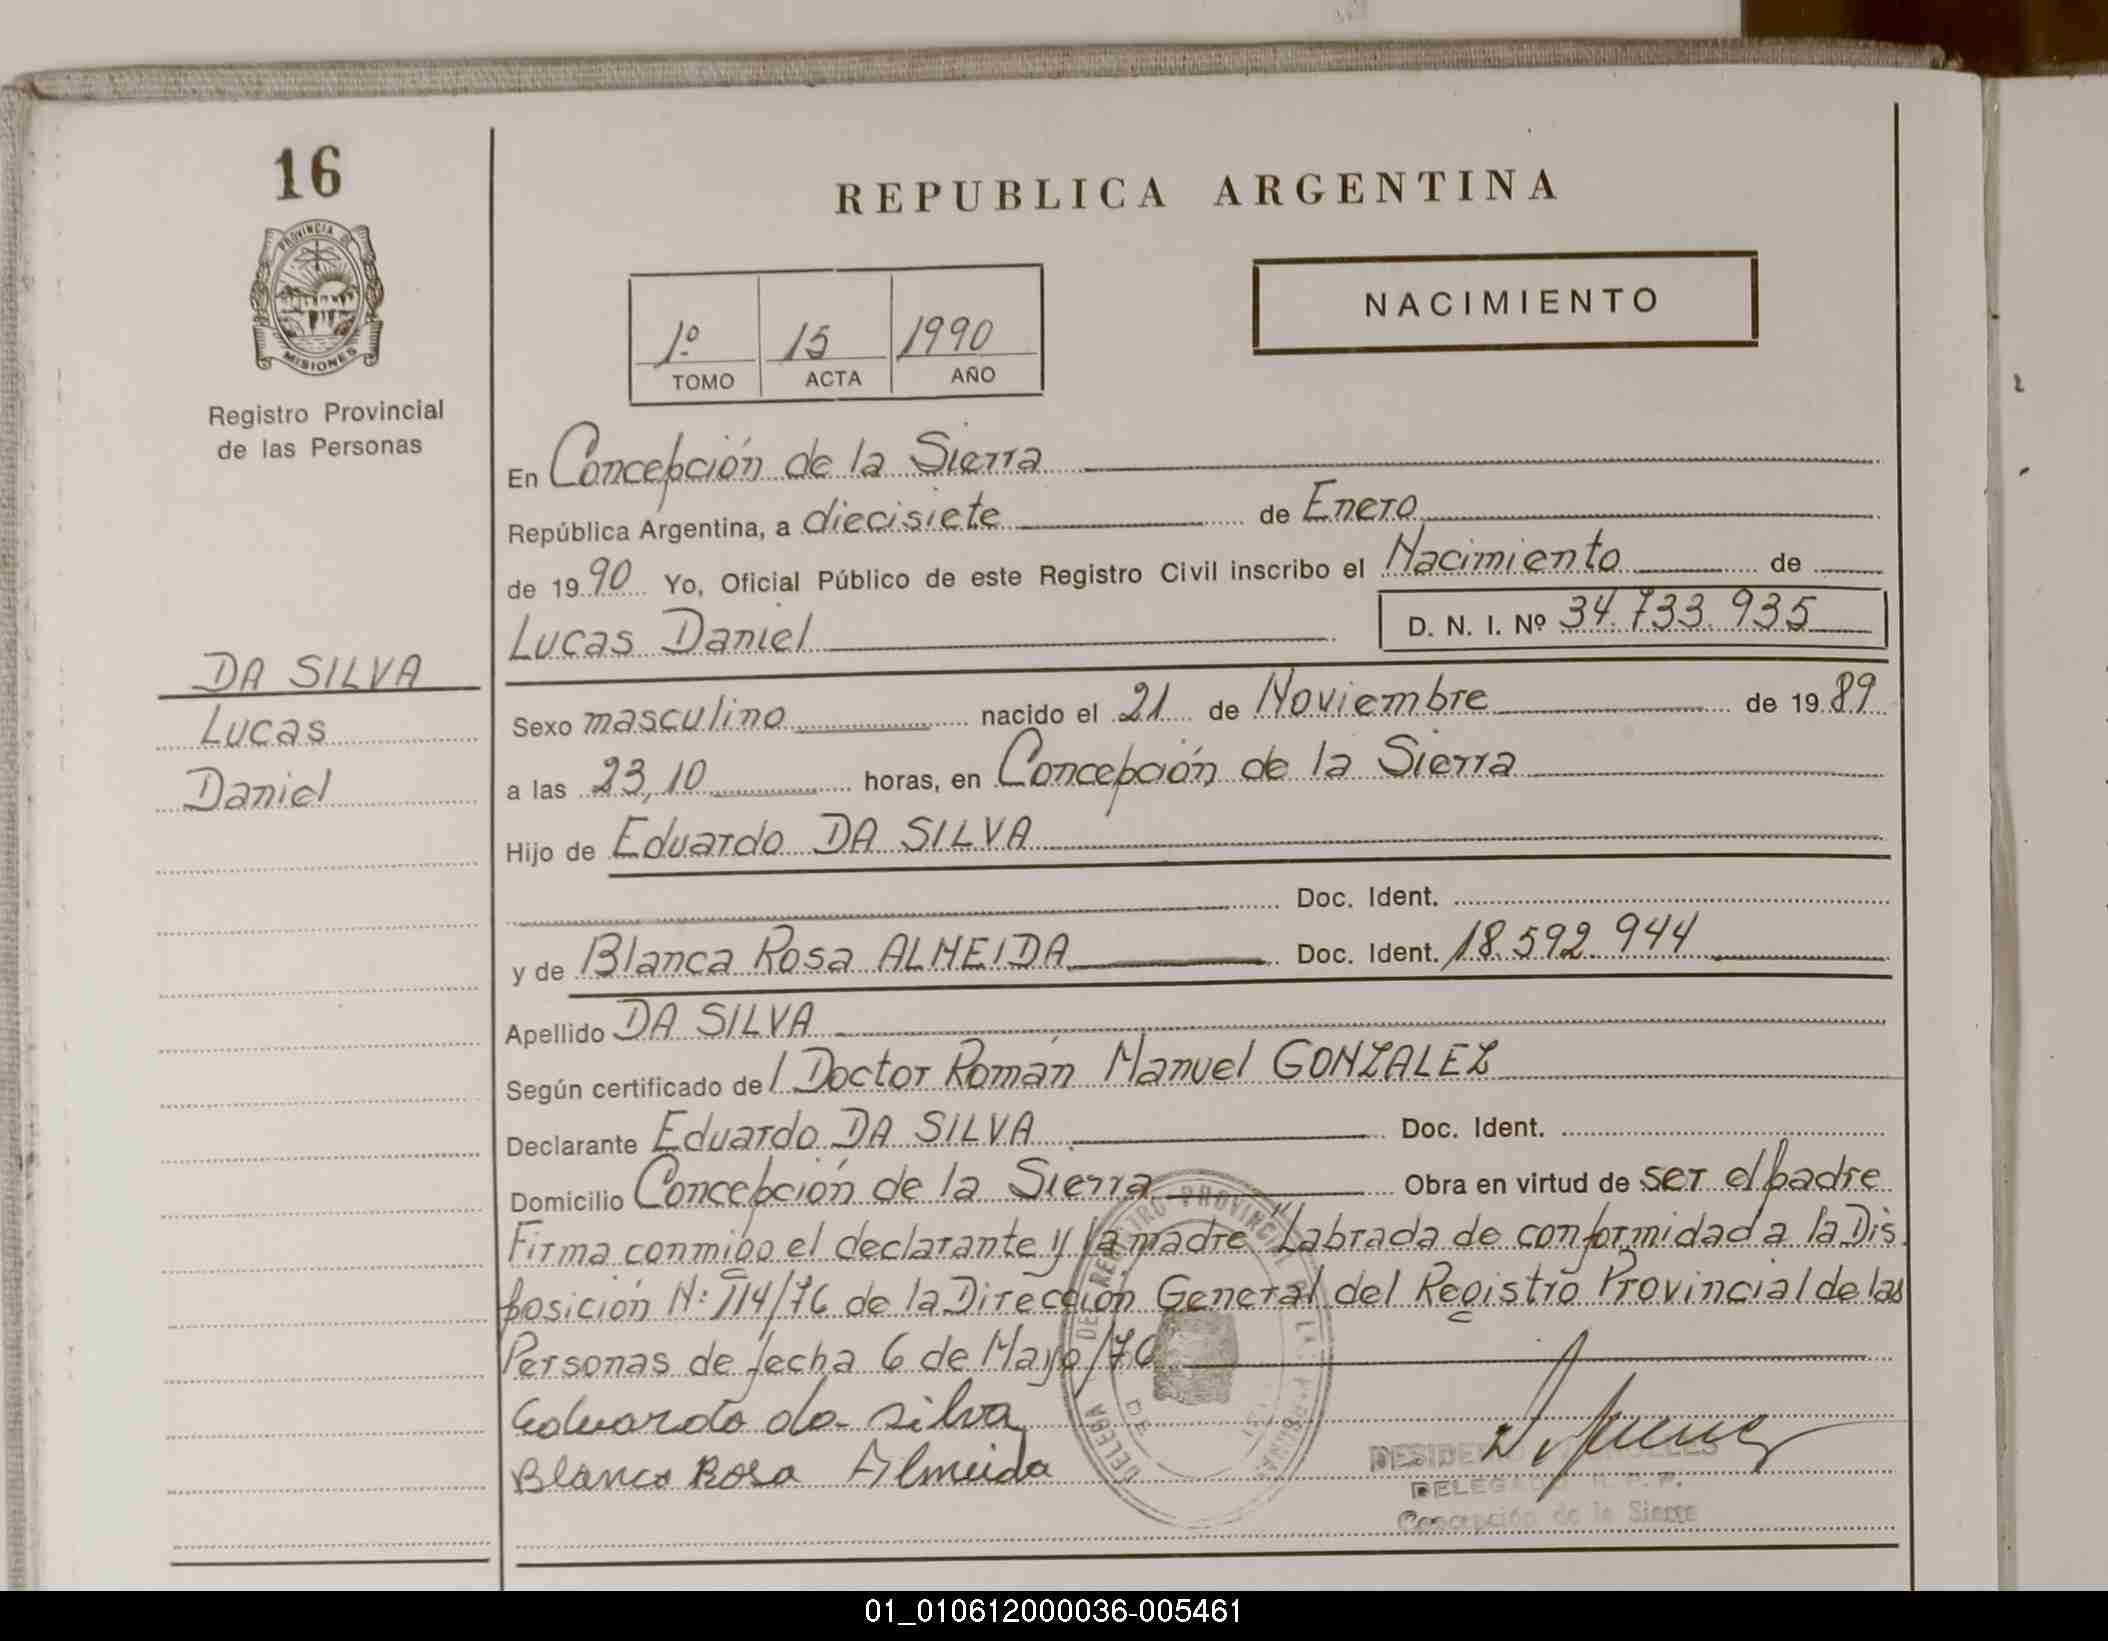 16
PROVINCIA DE
MISIONES
Registro Provincial
de las Personas
DA SILVA
Lucas
Daniel
REPUBLICA ARGENTINA
1º 15 1990
TOMO ACTA AÑO
NACIMIENTO
En Concepción de la Sierra
República Argentina, a diecisiete de Enero
de 1990 Yo, Oficial Público de este Registro Civil inscribo el Nacimiento de
Lucas Daniel D. N. I. Nº 34.733.935
Sexo masculino nacido el 21 de Noviembre de 1989
a las 23,10 horas, en Concepción de la Sierra
Hijo de Eduardo DA SILVA
Doc. Ident.
y de Blanca Rosa ALMEIDA Doc. Ident. 18.592.944
Apellido DA SILVA
Según certificado del Doctor Román Manuel GONZALEZ
Declarante Eduardo DA SILVA Doc. Ident.
Domicilio Concepción de la Sierra Obra en virtud de ser el padre
Firma conmigo el declarante y la madre "Labrada de conformidad a la Dis
posición N: 114/76 de la Dirección General del Registro Provincial de las
Personas de fecha 6 de Mayo/76
Eduardo da silva
Blanca Rosa Almeida
DELEGADO R. P. P.
Concepción de la Sierra
01_010612000036-005461